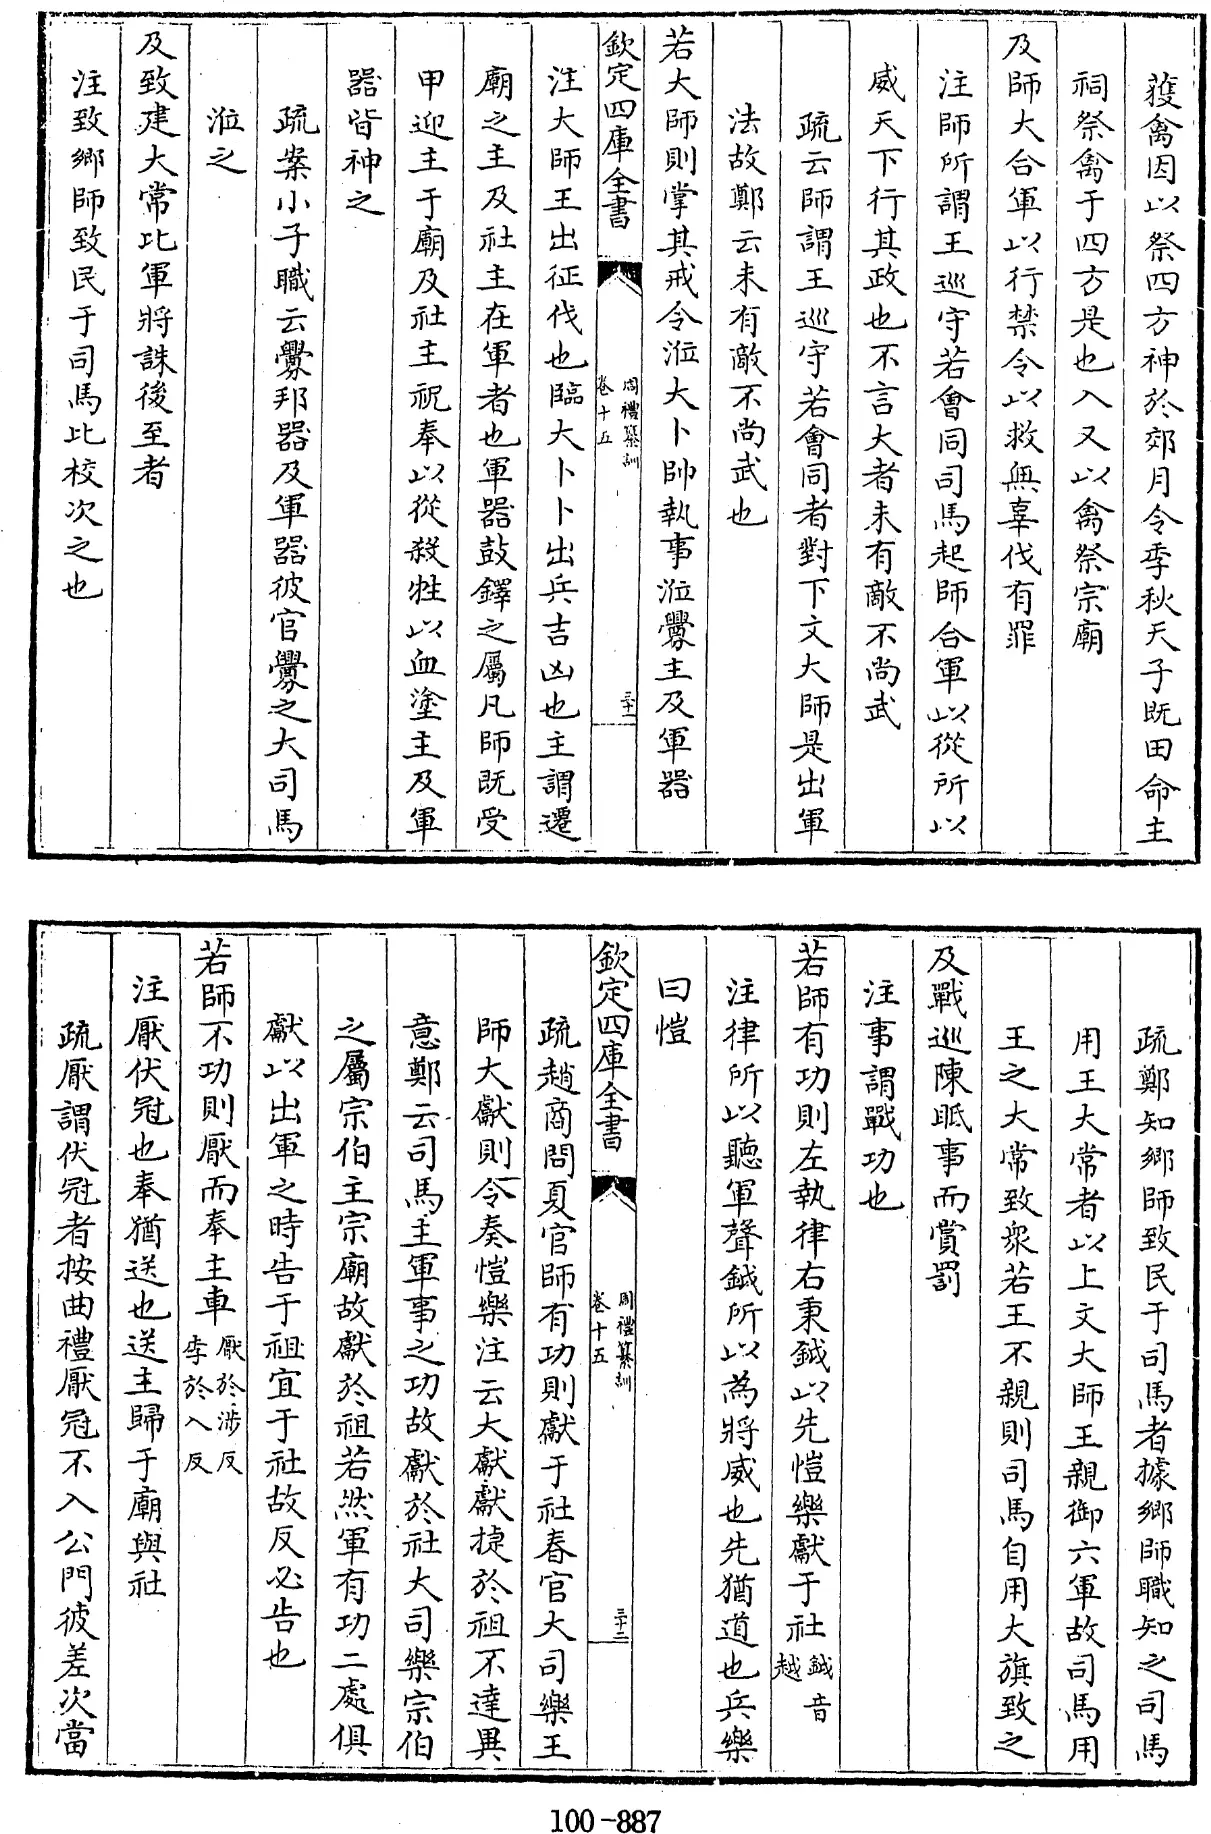 獲禽因以祭四方神於郊月令季秋天子既田命主
祠祭禽于四方是也入又以禽祭宗廟
及師大合軍以行禁令以救無辜伐有罪
注師所謂王巡守若會同司馬起師合軍以從所以
威天下行其政也不言大者未有敵不尚武
疏云師謂王巡守若會同者對下文大師是出軍
法故鄭云未有敵不尚武也
若大師則掌其戒令涖大卜帥執事涖釁主及軍器
欽定四庫全書
周禮纂訓
卷十五
三十一
注大師王出征伐也臨大卜卜出兵吉凶也主謂遷
廟之主及社主在軍者也軍器鼓鐸之屬凡師既受
甲迎主于廟及社主祝奉以從殺牲以血塗主及軍
器皆神之
疏案小子職云釁邦器及軍器彼官釁之大司馬
涖之
及致建大常比軍將誅後至者
注致鄉師致民于司馬比校次之也
疏鄭知鄉師致民于司馬者據鄉師職知之司馬
用王大常者以上文大師王親御六軍故司馬用
王之大常致衆若王不親則司馬自用大旗致之
及戰巡陳眡事而賞罰
注事謂戰功也
若師有功則左執律右秉鉞以先愷樂獻于社鉞音
越
注律所以聽軍聲鉞所以為將威也先猶道也兵樂
曰愷
欽定四庫全書
周禮纂訓
卷十五
三十二
疏趙商問夏官師有功則獻于社春官大司樂王
師大獻則令奏愷樂注云大獻獻捷於祖不達異
意鄭云司馬主軍事之功故獻於社大司樂宗伯
之屬宗伯主宗廟故獻於祖若然軍有功二處俱
獻以出軍之時告于祖宜于社故反必告也
若師不功則厭而奉主車厭於涉反
李於入反
注厭伏冠也奉猶送也送主歸于廟與社
疏厭謂伏冠者按曲禮厭冠不入公門彼差次當
100-887